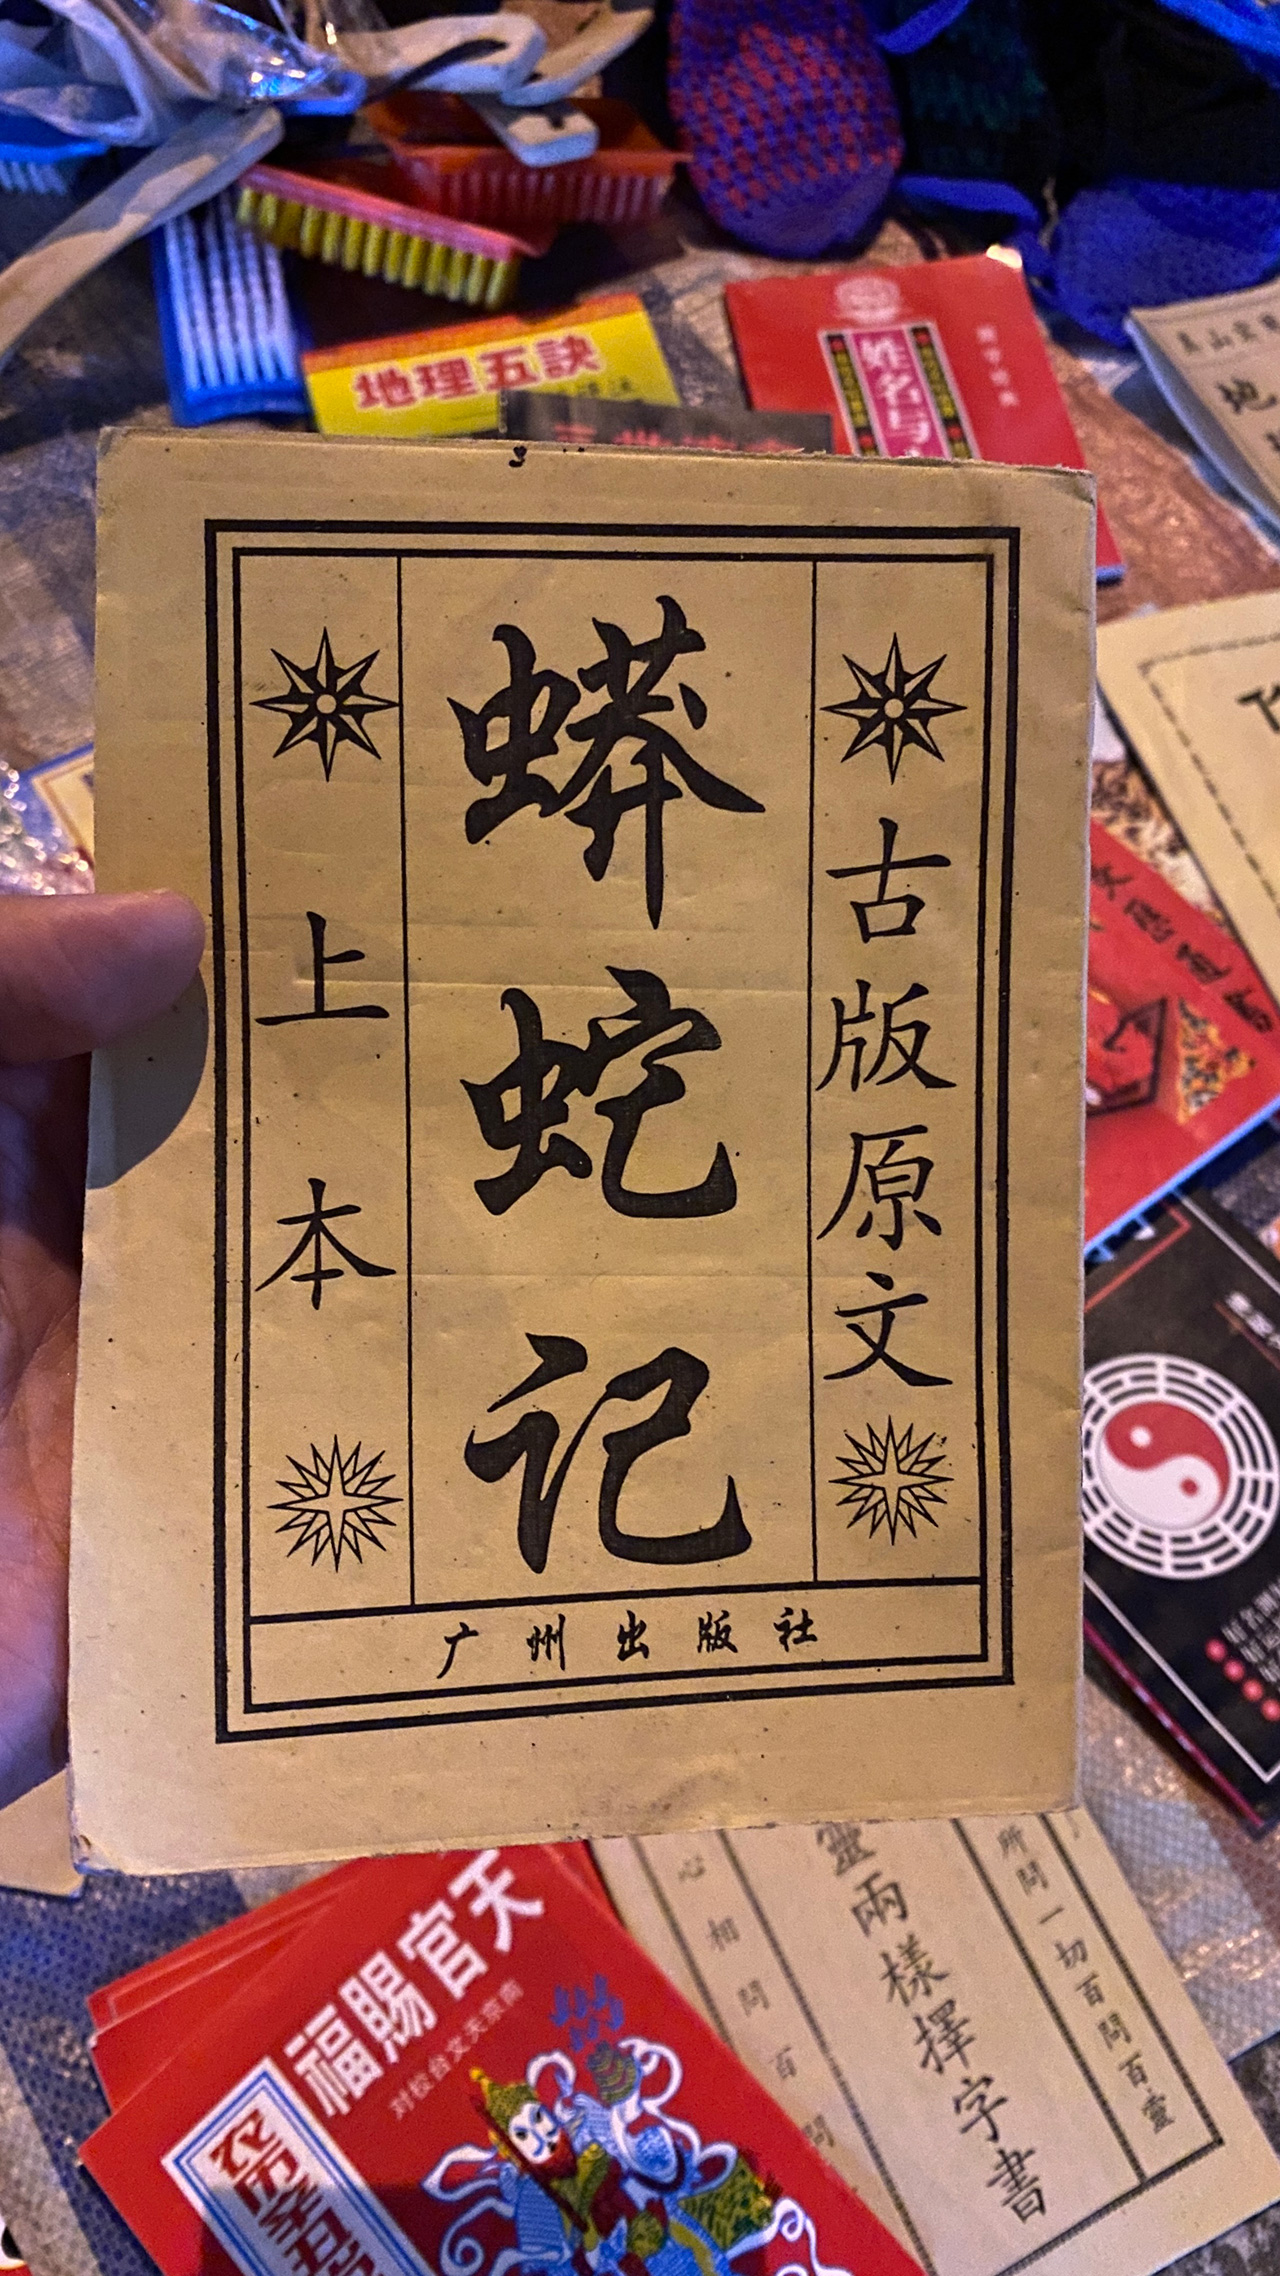 地理五訣
姓名与
地
古版原文
蟒蛇记
上本
广州出版社
天官賜福
对校台文天京南
靈兩樣擇字書
所問一切百問百靈
心相問百問